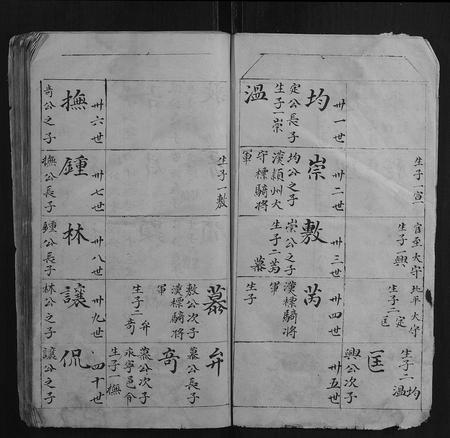 官至太守
生子一興
北平太守
生子二定
匡
生子二均
溫
匡
興公次子
卅一世
均
定公長子
生子一崇
溫
卅二世
崇
均公之子
漢潁州太
守標騎將
軍
卅三世
敷
崇公之子
生子二芮
慕
卅四世
芮
漢標騎將
軍
生子
卅五世
生子一敷
慕
敷公次子
漢標騎將
軍
生子二弁
奇
弁
慕公長子
奇
慕公次子
永寧邑令
生子一撫
卅六世
撫
奇公之子
卅七世
鍾
撫公長子
卅八世
林
鍾公長子
卅九世
讓
林公之子
四十世
侃
讓公之子